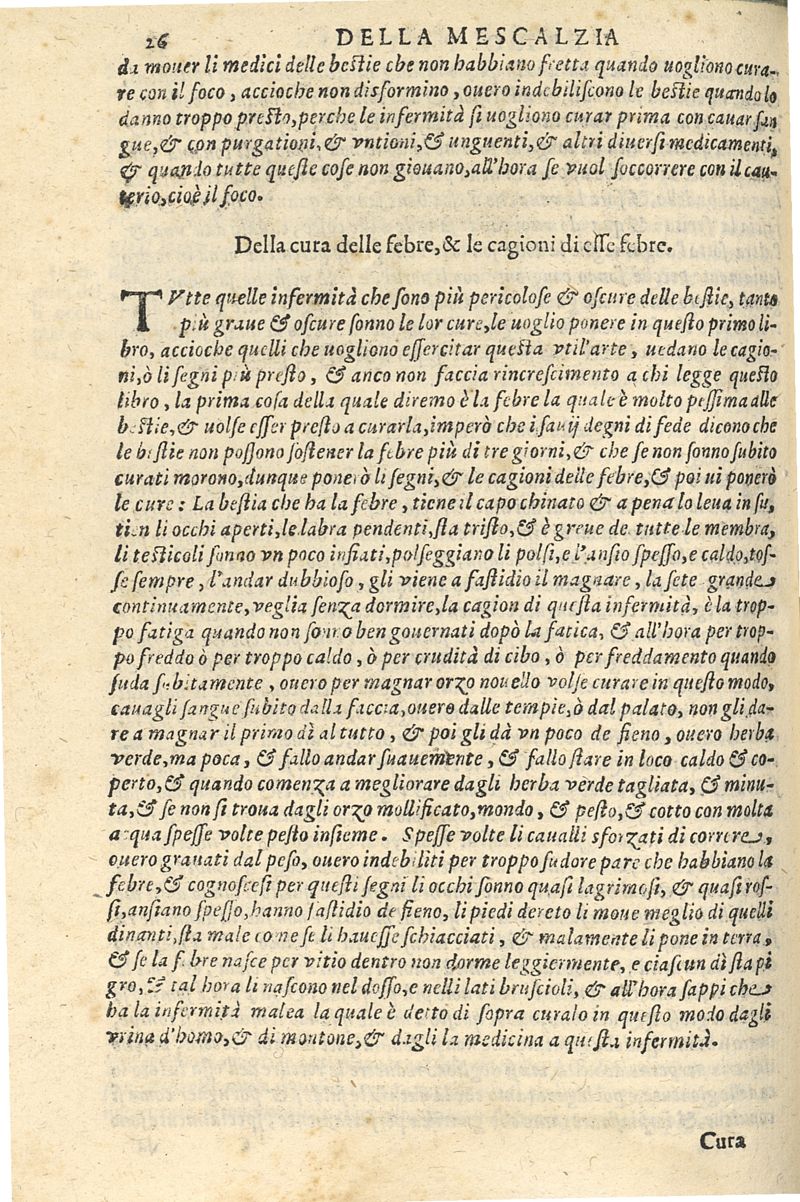 26 DELLA MESCALZIA
da mouer li medici delle bestie che non habbiano fretta quando uogliono cura-
re con il foco, accioche non disformino, ouero indebiliscono le bestie quando lo
danno troppo presto, perche le infermità si uogliono curar prima con cauar san
gue, & con purgationi, & vntioni, & unguenti, & altri diuersi medicamenti,
& quando tutte queste cose non giouano, all'hora se vuol soccorrere con il cau-
terio, cioè il foco.
Della cura delle febre, & le cagioni di esse febre.
TVtte quelle infermità che sono più pericolose & oscure delle bestie, tanto
più graue & oscure sonno le lor cure, le uoglio ponere in questo primo li-
bro, accioche quelli che uogliono essercitar questa vtil'arte, uedano le cagio-
ni, ò li segni più presto, & anco non faccia rincrescimento a chi legge questo
libro, la prima cosa della quale diremo è la febre la quale è molto pessima alle
bestie, & uolse esser presto a curarla, imperò che i sauij degni di fede dicono che
le bestie non possono sostener la febre più di tre giorni, & che se non sonno subito
curati morono, dunque ponerò li segni, & le cagioni delle febre, & poi ui ponerò
le cure: La bestia che ha la febre, tiene il capo chinato & a pena lo leua in su,
tien li occhi aperti, le labra pendenti, sta tristo, & è greue de tutte le membra,
li testicoli sonno vn poco infiati, polseggiano li polsi, e l'ansio spesso, e caldo, tos-
se sempre, l'andar dubbioso, gli viene a fastidio il magnare, la sete grande
continuamente, veglia senza dormire, la cagion di questa infermità, è la trop-
po fatiga quando non sonno ben gouernati dopò la fatica, & all'hora per trop-
po freddo ò per troppo caldo, ò per crudità di cibo, ò per freddamento quando
suda subitamente, ouero per magnar orzo nouello volse curare in questo modo,
cauagli sangue subito dalla faccia, ouero dalle tempie, ò dal palato, non gli da-
re a magnar il primo dì al tutto, & poi gli dà vn poco de fieno, ouero herba
verde, ma poca, & fallo andar suauemente, & fallo stare in loco caldo & co-
perto, & quando comenza a megliorare dagli herba verde tagliata, & minu-
ta, & se non si troua dagli orzo mollificato, mondo, & pesto, & cotto con molta
acqua spesse volte pesto insieme. Spesse volte li caualli sforzati di correre,
ouero grauati dal peso, ouero indebiliti per troppo sudore pare che habbiano la
febre, & cognoscesi per questi segni li occhi sonno quasi lagrimosi, & quasi ros-
si, ansiano spesso, hanno fastidio de fieno, li piedi dereto li moue meglio di quelli
dinanti, sta male come se li hauesse schiacciati, & malamente li pone in terra,
& se la febre nasce per vitio dentro non dorme leggiermente, e ciascun dì sta pi
gro, & tal hora li nascono nel dosso, e nelli lati bruscioli, & all'hora sappi che
ha la infermità malea la quale è detto di sopra curalo in questo modo dagli
vrina d'homo, & di montone, & dagli la medicina a questa infermità.
Cura